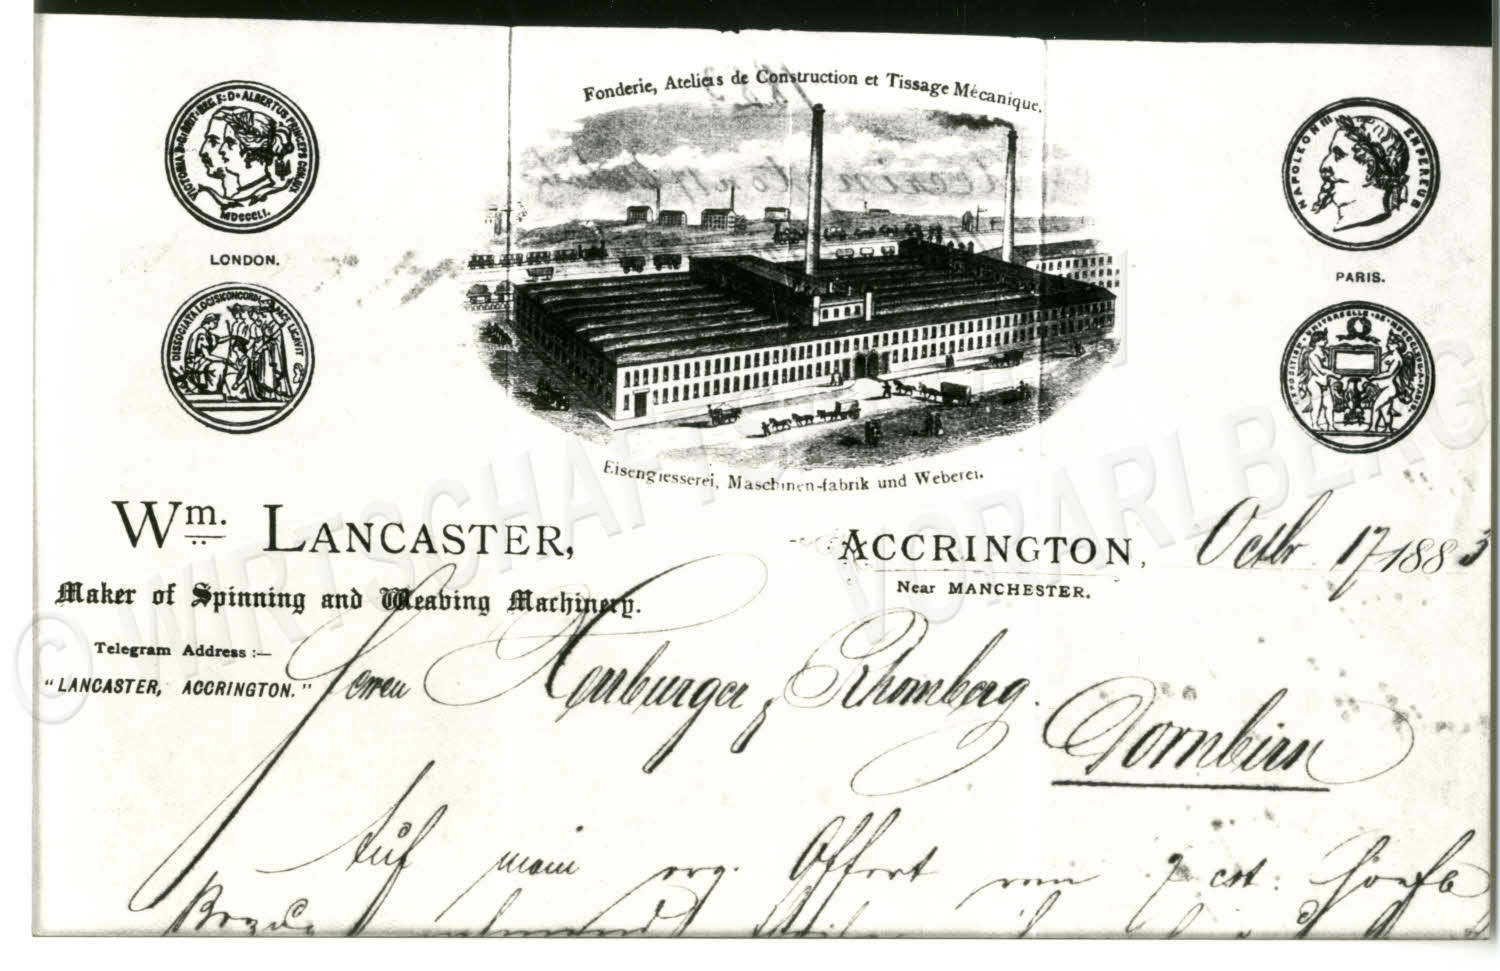 Fonderie, Ateliers de Construction et Tissage Mécanique.
VICTORIA D:G:BRIT:REG F:D• ALBERTUS PRINCEPS CONJUX
MDCCCLI.
LONDON.
DISSOCIATA LOCIS CONCORDI PACE LIGAVIT
NAPOLEON III EMPEREUR
PARIS.
EXPOSITION UNIVERSELLE
Eisengiesserei, Maschinen-fabrik und Weberei.
Wm. LANCASTER,
ACCRINGTON, Octbr. 17 1883
Near MANCHESTER.
Maker of Spinning and Weaving Machinery.
Telegram Address :—
"LANCASTER, ACCRINGTON."
Herren Herrburger & Rhomberg.
Dornbirn
Auf mein erg. Offert vom 7 cst: höfl
Bezug nehmend
© WIRTSCHAFTSARCHIV VORARLBERG